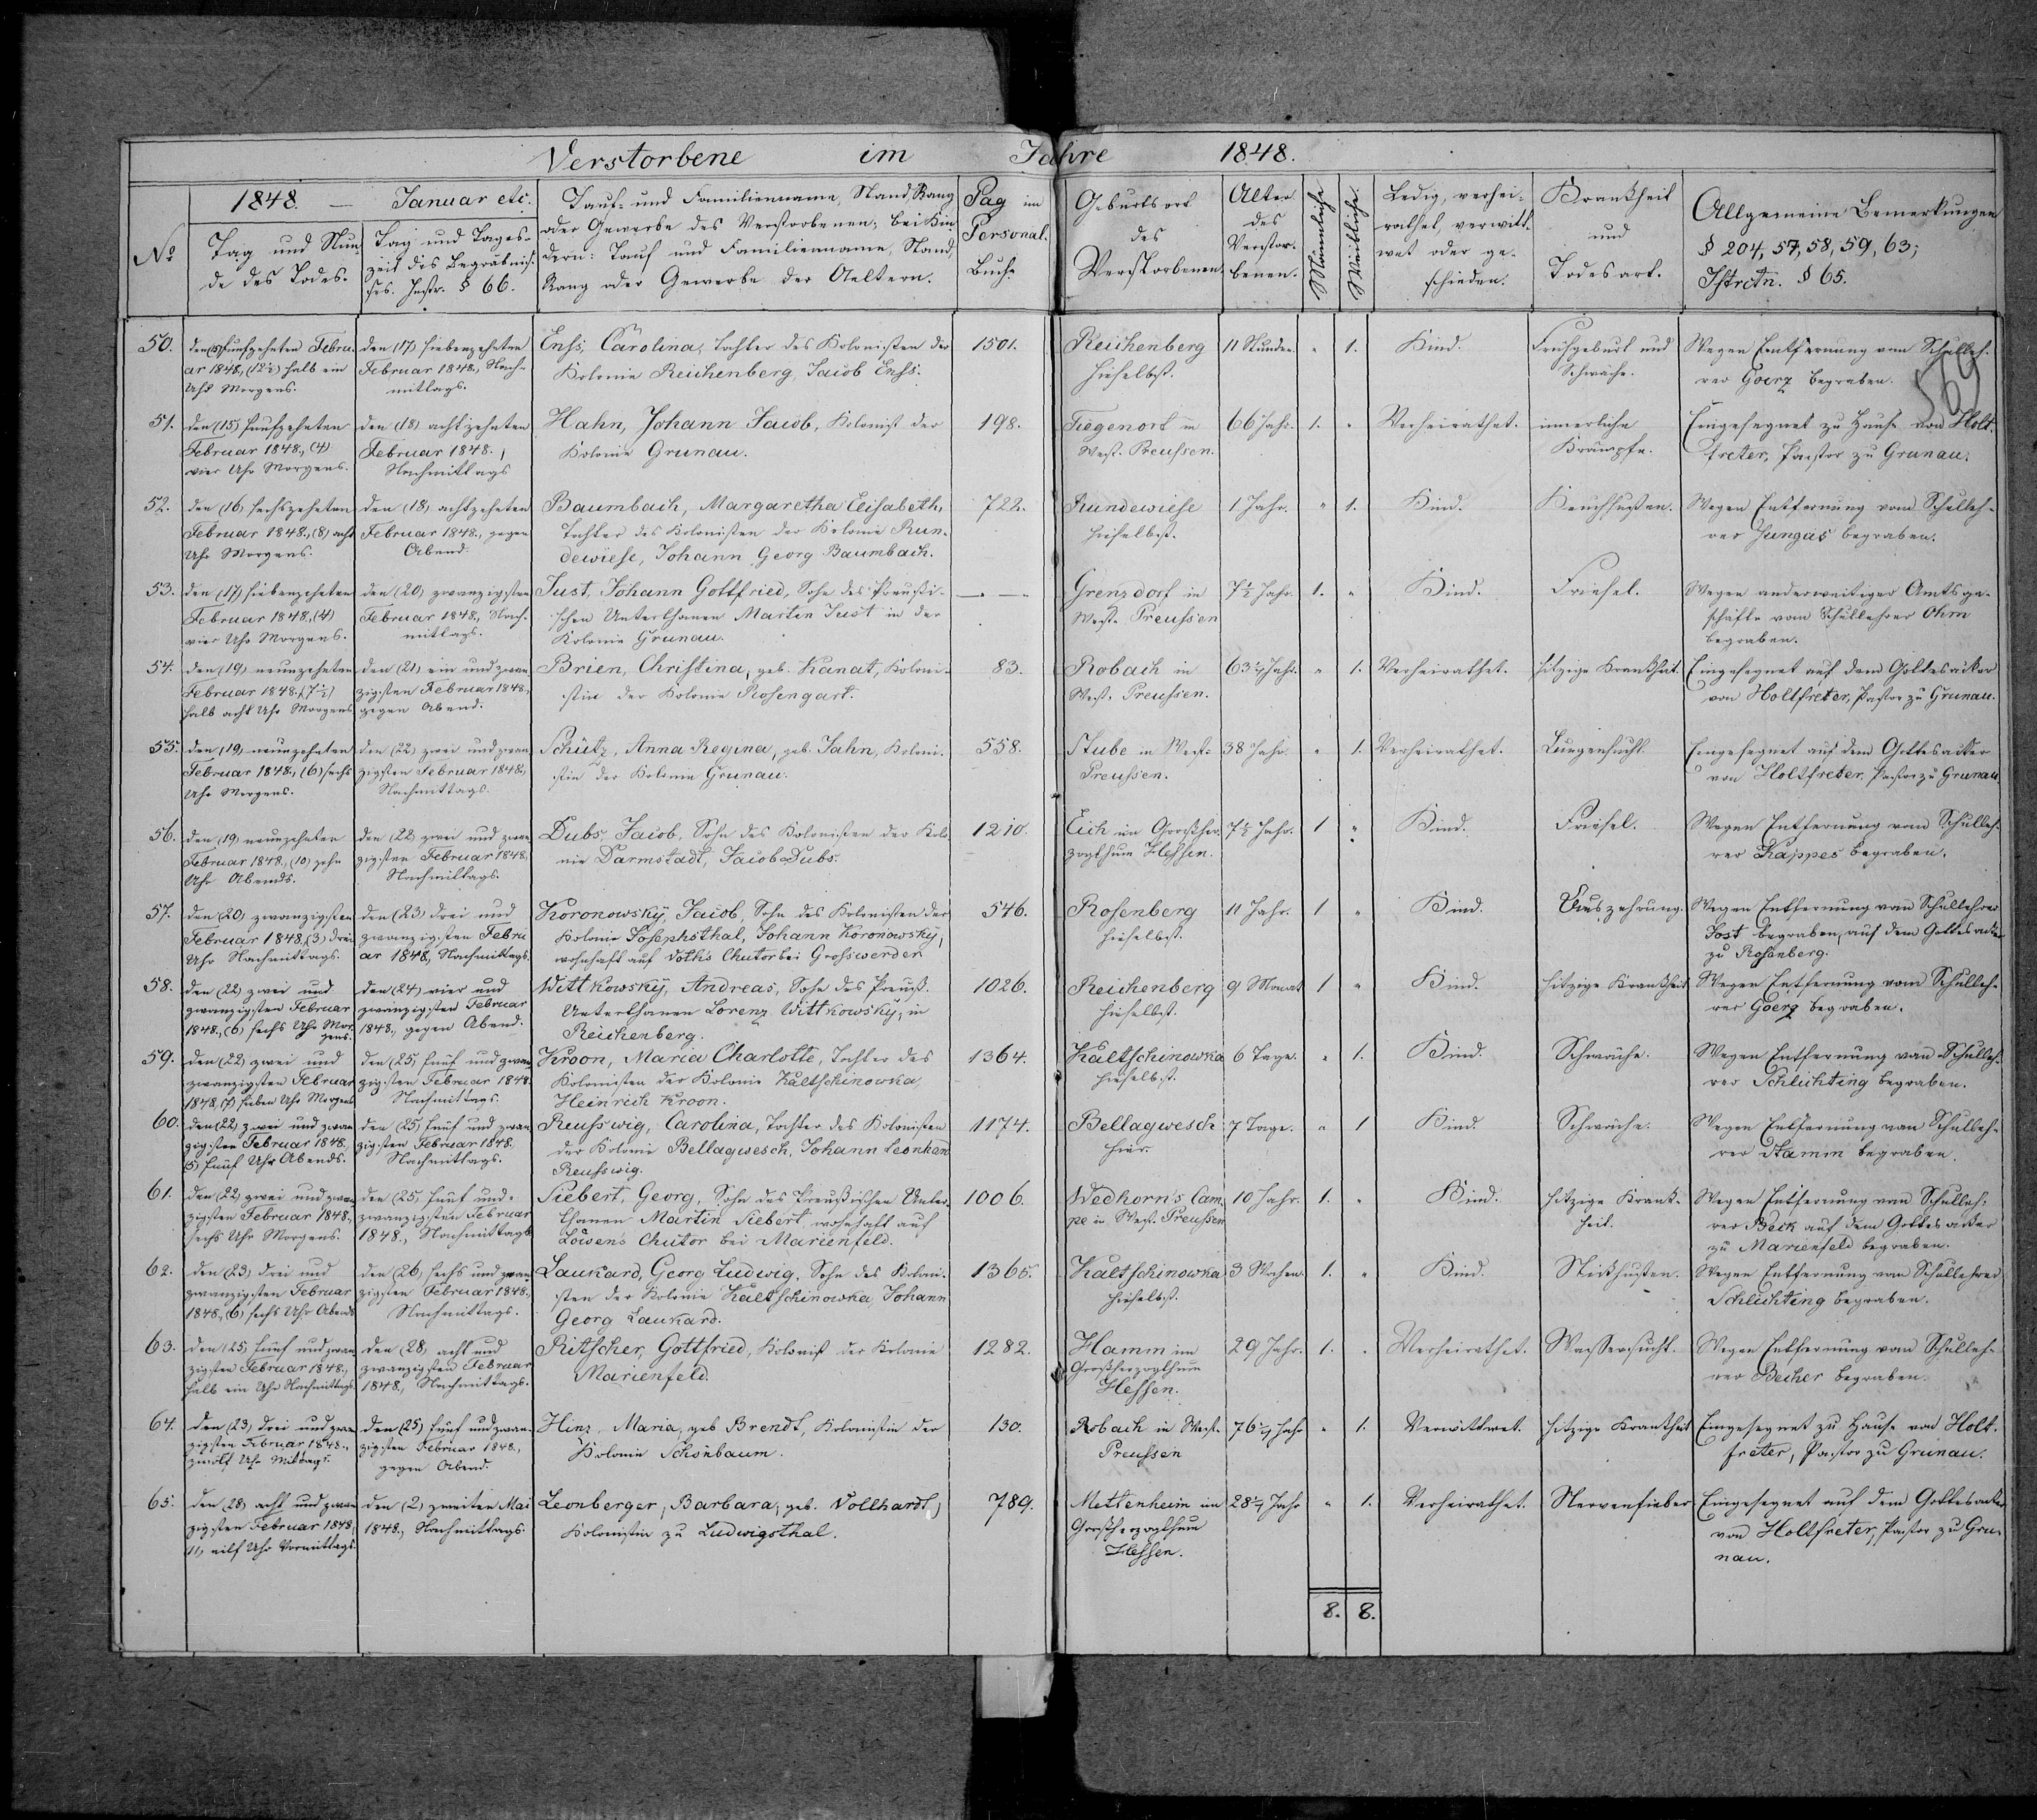 Verstorbene im Jahre 1848.
1848. — Januar etc.
№
Tag und Stun-
de des Todes.
Tag und Tages-
zeit des Begräbnis-
ses. Instr. § 66.
Tauf- und Familienname, Stand, Rang
oder Gewerbe des Verstorbenen; bei Kin
dern: Tauf und Familienname, Stand,
Rang oder Gewerbe der Aeltern.
Pag im
Personal-
Buch.
Geburtsort
des
Verstorbenen.
Alter
des
Verstor-
benen.
Männliche
Weibliche.
Ledig, verhei-
rathet, verwitt-
wet oder ge-
schieden.
Krankheit
und
Todesart.
Allgemeine Bemerkungen
§ 204, 57, 58, 59, 63;
Istrctn. § 65.
569
50.
den (15) fünfzehnten Febru-
ar 1848, (12½) halb ein
Uhr Morgens.
den (17) siebenzehnten
Februar 1848., Nach-
mittags.
Enss, Carolina, Tochter des Kolonisten der
Kolonie Reichenberg, Jacob Enss.
1501.
Reichenberg
hieselbst.
11 Stunden.
" 1.
Kind.
Frühgeburt und
Schwäche.
Wegen Entfernung vom Schulleh-
rer Goerz begraben.
51.
den (15) fünfzehnten
Februar 1848., (4)
vier Uhr Morgens.
den (18) achtzehnten
Februar 1848.,
Nachmittags
Hahn, Johann Jacob, Kolonist der
Kolonie Grunau.
198.
Tiegenort in
West-Preussen.
66 Jahr.
1. "
Verheirathet.
innerliche
Krämpfe.
Eingesegnet zu Hause von Holt-
freter, Pastor zu Grunau.
52.
den (16) sechszehnten
Februar 1848., (8) acht
Uhr Morgens.
den (18) achtzehnten
Februar 1848., gegen
Abend.
Baumbach, Margaretha Elisabeth,
Tochter des Kolonisten der Kolonie Run-
dewiese, Johann Georg Baumbach.
722.
Rundewiese
hieselbst.
1 Jahr.
" 1.
Kind.
Keuchhusten.
Wegen Entfernung vom Schulleh-
rer Jungas begraben.
53.
den (17) siebenzehnten
Februar 1848., (4)
vier Uhr Morgens.
den (20) zwanzigsten
Februar 1848., Nach-
mittags.
Just, Johann Gottfried, Sohn des Preussi-
schen Unterthanen Martin Just in der
Kolonie Grunau.
— " —
Grenzdorf in
West-Preussen
7½ Jahr.
1. "
Kind.
Friesel.
Wegen anderweitiger Amtsge-
schäfte vom Schullehrer Ohm
begraben.
54.
den (19) neunzehnten
Februar 1848. (7½)
halb acht Uhr Morgens
den (21) ein und zwan
zigsten Februar 1848,
gegen Abend.
Brien, Christina, geb. Kanat, Koloni-
stin der Kolonie Rosengart.
83.
Robach in
West-Preussen.
63½ Jahr.
" 1.
Verheirathet.
hitzige Krankheit.
Eingesegnet auf dem Gottesacker
von Holtfreter, Pastor zu Grunau.
55.
den (19) neunzehnten
Februar 1848., (6) sechs
Uhr Morgens.
den (22) zwei und zwan
zigsten Februar 1848.,
Nachmittags.
Schütz, Anna Regina, geb. Jahn, Koloni-
stin der Kolonie Grunau.
558.
Stube in West-
Preussen.
38 Jahr.
" 1.
Verheirathet.
Lungensucht.
Eingesegnet auf dem Gottesacker
von Holtfreter, Pastor zu Grunau
56.
den (19) neunzehnten
Februar 1848., (10) zehn
Uhr Abends.
den (22) zwei und zwan
zigsten Februar 1848,
Nachmittags.
Dubs, Jacob, Sohn des Kolonisten der Kolo
nie Darmstadt, Jacob Dubs.
1210.
Eich im Grossher-
zogthum Hessen.
7½ Jahr.
1 "
Kind.
Friesel.
Wegen Entfernung vom Schulleh-
rer Kappes begraben.
57.
den (20) zwanzigsten
Februar 1848, (3) drei
Uhr Nachmittags.
den (23) drei und
zwanzigsten Febru
ar 1848, Nachmittags.
Koronowsky, Jacob, Sohn des Kolonisten der
Kolonie Josephsthal, Johann Koronowsky,
wohnhaft auf Voth's Chutor bei Grosswerder
546.
Rosenberg
hieselbst.
11 Jahr.
1 "
Kind.
Auszehrung.
Wegen Entfernung vom Schullehrer
Jost begraben, auf dem Gottesacker
zu Rosenberg.
58.
den (22) zwei und
zwanzigsten Februar
1848., (6) sechs Uhr Mor-
gens.
den (24) vier und
zwanzigsten Februar
1848., gegen Abend.
Wittkowsky, Andreas, Sohn des Preuss.
Unterthanen Lorenz Wittkowsky, in
Reichenberg.
1026.
Reichenberg
hieselbst.
9 Monat
1 "
Kind.
hitzige Krankheit
Wegen Entfernung vom Schulleh-
rer Goerz begraben.
59.
den (22) zwei und
zwanzigsten Februar
1848, (7) sieben Uhr Morgens
den (25) fünf und zwan
zigsten Februar 1848.
Nachmittags.
Kroon, Maria Charlotte, Tochter des
Kolonisten der Kolonie Kaltschinowka,
Heinrich Kroon.
1364.
Kaltschinowka
hieselbst.
6 Tage.
" 1.
Kind.
Schwäche.
Wegen Entfernung vom Schulleh-
rer Schlichting begraben.
60.
den (22) zwei und zwan
zigsten Februar 1848.
(5) fünf Uhr Abends.
den (25) fünf und zwan
zigsten Februar 1848.
Nachmittags.
Reusswig, Carolina, Tochter des Kolonisten
der Kolonie Bellagwesch, Johann Leonhard
Reusswig.
1174.
Bellagwesch
hier.
7 Tage.
" 1
Kind.
Schwäche.
Wegen Entfernung vom Schulleh-
rer Stamm begraben.
61.
den (22) zwei und zwan
zigsten Februar 1848.,
sechs Uhr Morgens.
den (25) fünf und
zwanzigsten Februar
1848., Nachmittags.
Siebert, Georg, Sohn des Preussischen Unter-
thanen Martin Siebert, wohnhaft auf
Löwens Chutor bei Marienfeld.
1006.
Wedhorn's Cam-
pe in West-Preussen
10 Jahr.
1. "
Kind.
hitzige Krank-
heit.
Wegen Entfernung vom Schulleh-
rer Beck auf dem Gottesacker
zu Marienfeld begraben.
62.
den (23) drei und
zwanzigsten Februar
1848., (6) sechs Uhr Abends
den (26) sechs und zwan
zigsten Februar 1848.
Nachmittags.
Laukard, Georg Ludwig, Sohn des Koloni-
sten der Kolonie Kaltschinowka, Johann
Georg Laukard.
1365.
Kaltschinowka
hieselbst.
3 Wochen.
1. "
Kind.
Stickhusten.
Wegen Entfernung vom Schullehrer
Schlichting begraben.
63.
den (25) fünf und zwan
zigsten Februar 1848.,
halb ein Uhr Nachmittags.
den (28) acht und
zwanzigsten Februar
1848., Nachmittags.
Ritscher, Gottfried, Kolonist der Kolonie
Marienfeld.
1282.
Hamm im
Grossherzogthum
Hessen.
29 Jahr.
1. "
Verheirathet.
Wassersucht.
Wegen Entfernung vom Schulleh-
rer Becher begraben.
64.
den (23) drei und zwan
zigsten Februar 1848.,
zwölf Uhr Mittags.
den (25) fünf und zwan-
zigsten Februar 1848.,
gegen Abend.
Hinz, Maria, geb Brendt, Kolonistin der
Kolonie Schönbaum.
130.
Robach in West-
Preussen
76½ Jahr
" 1.
Verwittwet.
hitzige Krankheit
Eingesegnet zu Hause von Holt-
freter, Pastor zu Grunau.
65.
den (28) acht und zwan
zigsten Februar 1848,
(11) eilf Uhr Vormittags.
den (2) zweiten Mai
1848., Nachmittags
Leonberger, Barbara, geb. Vollhardt,
Kolonistin zu Ludwigsthal.
789.
Mettenheim im
Grossherzogthum
Hessen.
28½ Jahr
" 1.
Verheirathet.
Nervenfieber
Eingesegnet auf dem Gottesacker
von Holtfreter, Pastor zu Gru-
nau.
8. 8.